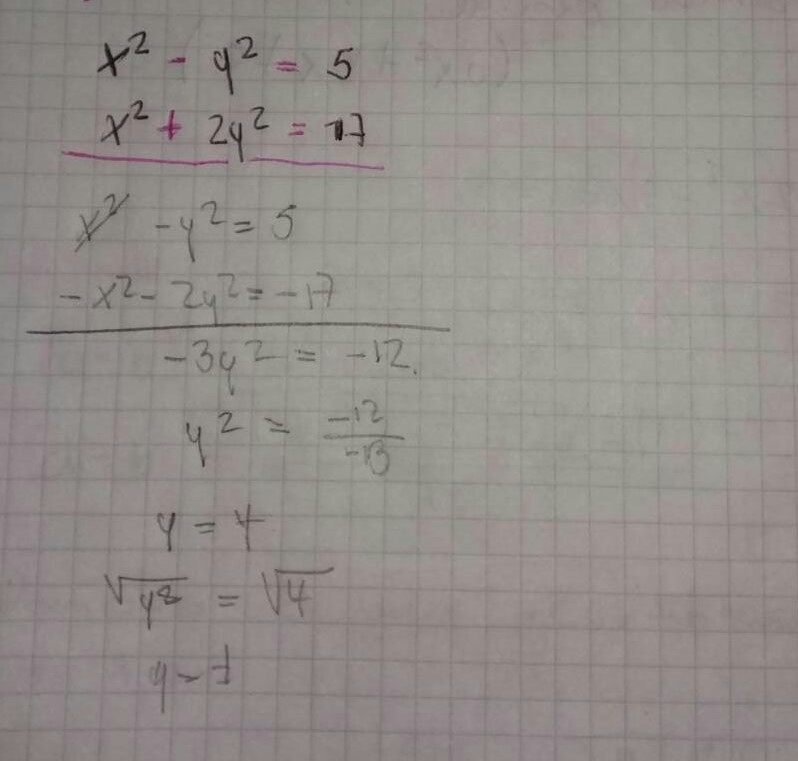 x² - y² = 5
x² + 2y² = 17
x² - y² = 5
-x² - 2y² = -17
-3y² = -12.
y² = -12/-3
y = 4
√y² = √4
y =